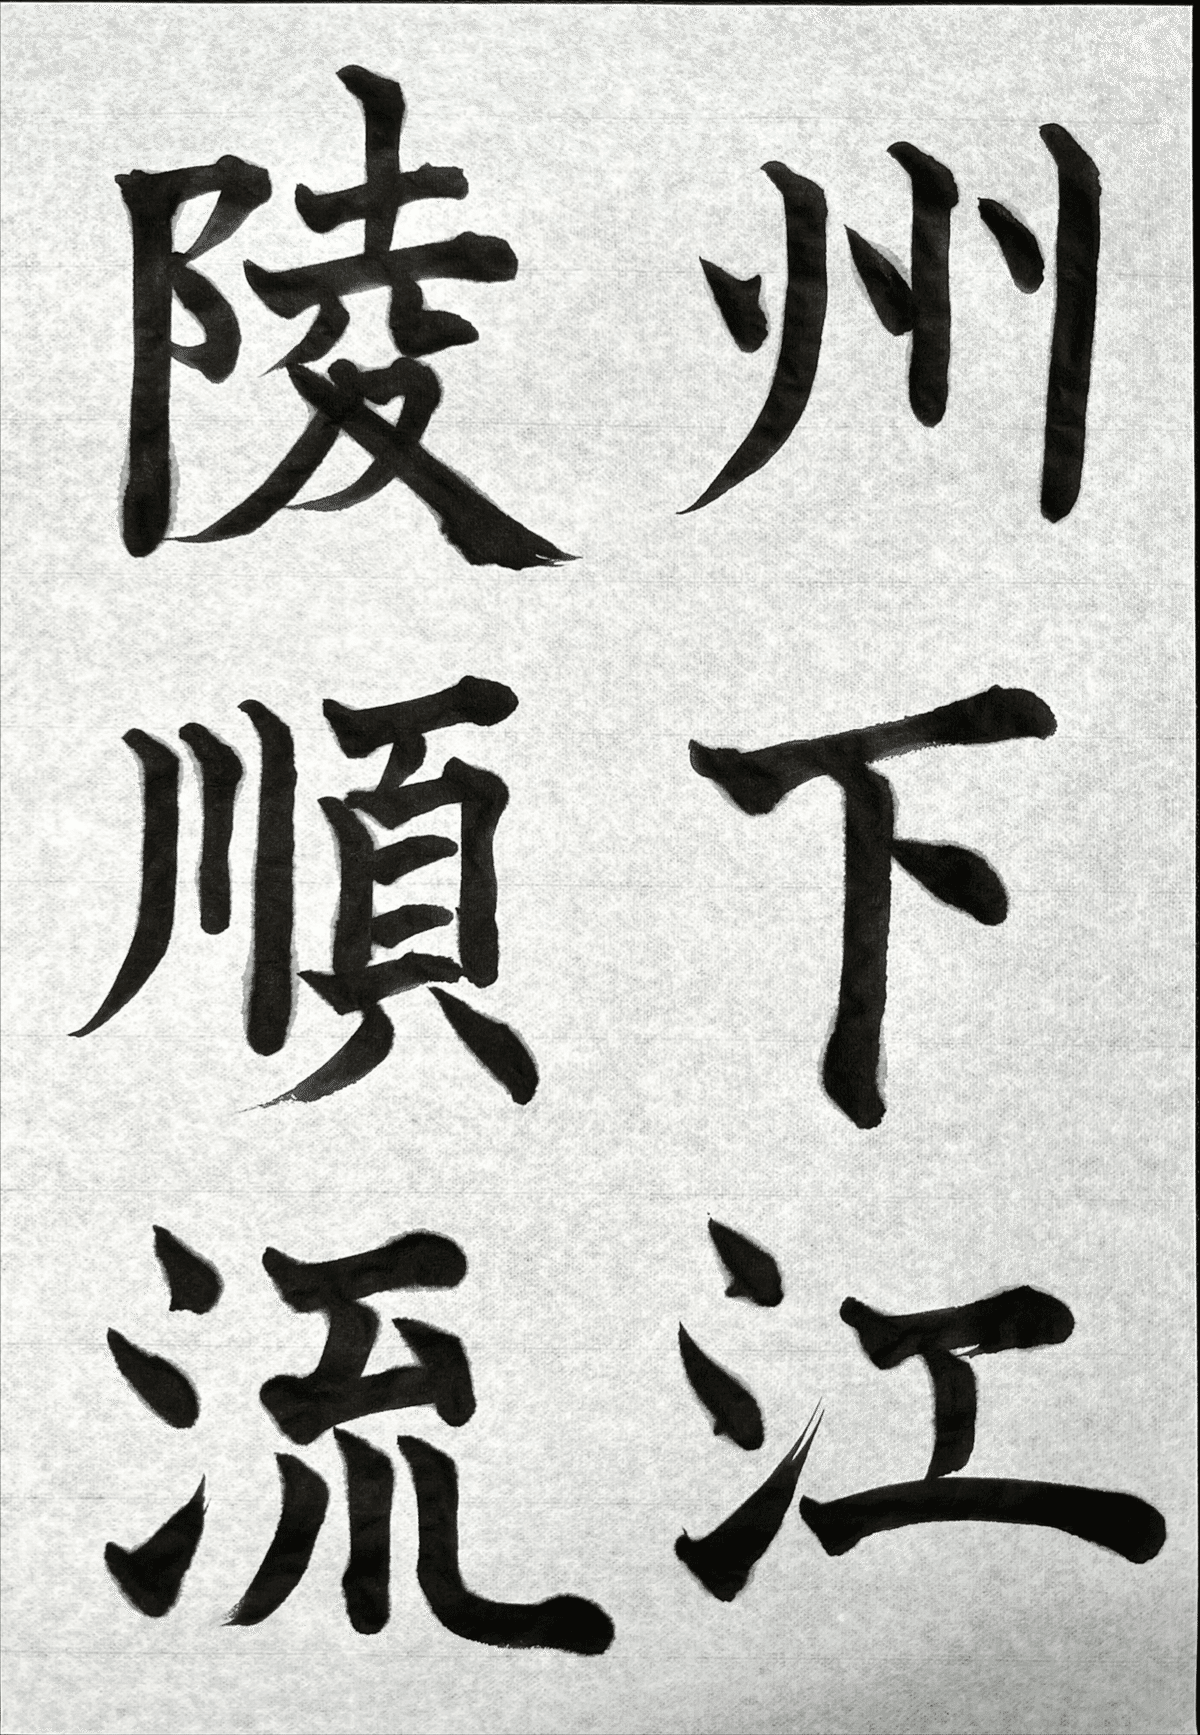 州下江
陵順流